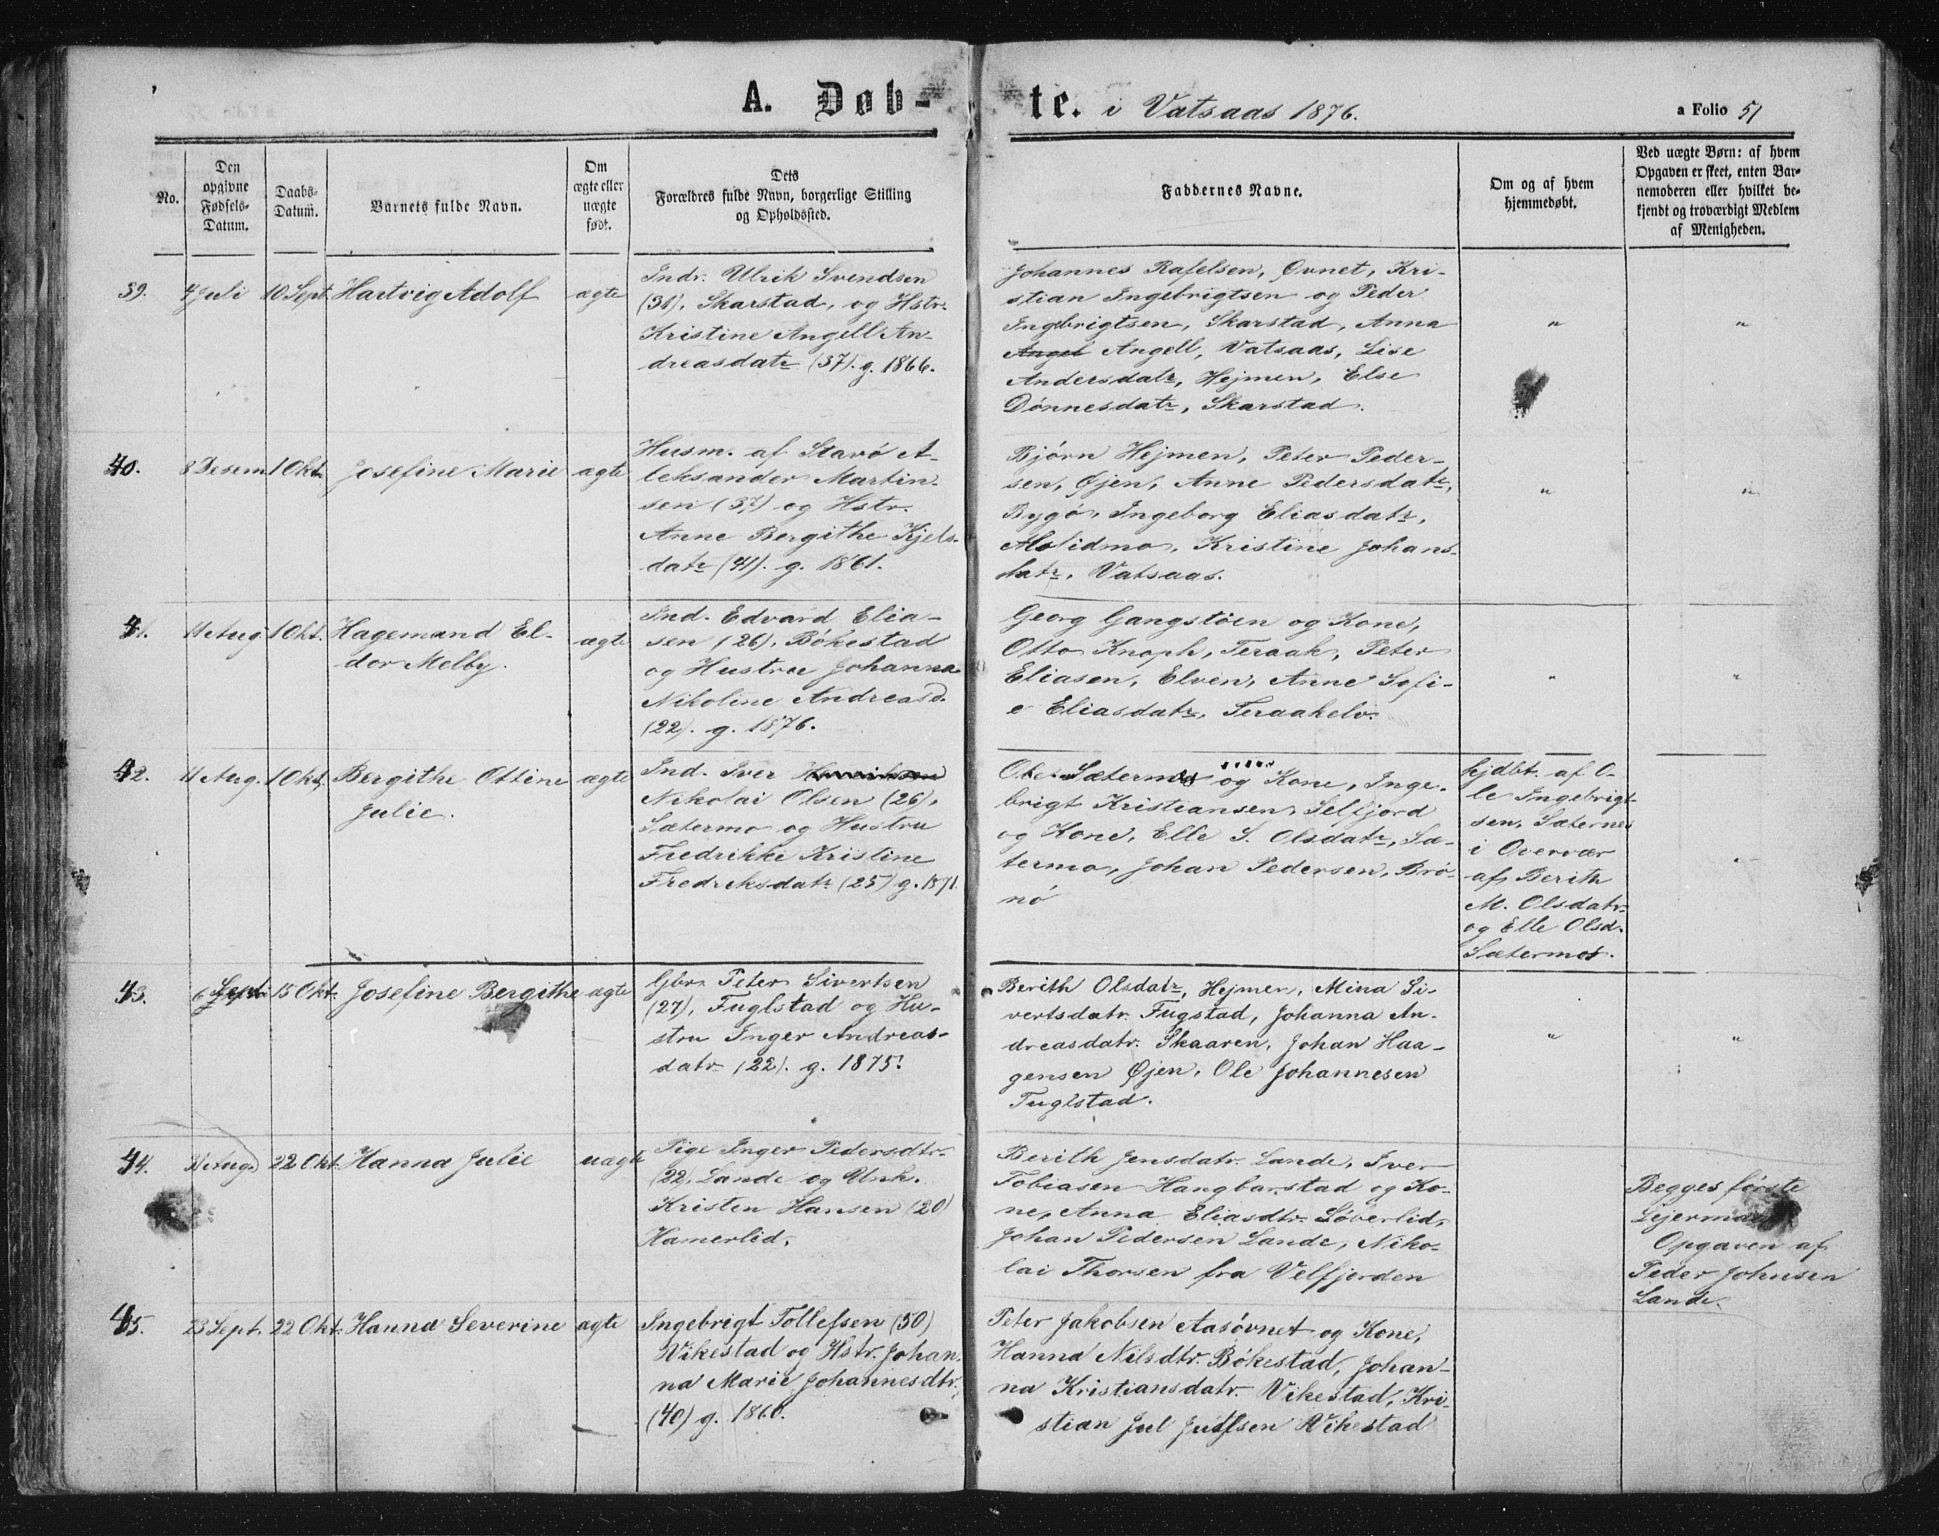 A. Døbte. i Vatsaas 1876.
a Folio 51
No.
Den opgivne Fødsels-Datum.
Daabs-Datum.
Barnets fulde Navn.
Om ægte eller uægte født.
Dets Forældres fulde Navn, borgerlige Stilling og Opholdssted.
Faddernes Navne.
Om og af hvem hjemmedøbt.
Ved uægte Børn: af hvem Opgaven er skeet, enten Barnemoderen eller hvilket bekjendt og troværdigt Medlem af Menigheden.
39. 4 Juli 10 Sept. Hartvig Adolf ægte
Indr. Ulrik Svendsen
(31), Skarstad, og Hstr.
Kristine Angell An-
dreasdatr (37). g. 1866.
Johannes Rafelsen, Øvnet, Kri-
stian Ingebrigtsen og Peder
Ingebrigtsen, Skarstad, Anna
Angel Angell, Vatsaas, Lise
Andersdatr, Hejmen, Else
Dønnesdatr, Skarstad.
" "
40. 8 Desem. 1 Okt. Josefine Marie ægte
Husm. af Stavø A-
leksander Martin-
sen (37) og Hstr.
Anne Bergithe Kjels-
datr (41). g. 1861.
Bjørn Hejmen, Peter Peder-
sen, Øjen, Anne Pedersdatr,
Bygø, Ingeborg Eliasdatr,
Kristine Johans-
datr, Vatsaas.
" "
41. 11 Aug. 1 Okt. Hagemand El-
dor Melby. ægte
Ind. Edvard Elia-
sen (26), Bøkestad
og Hustru Johanna
Nikoline Andreasd.
(22). g. 1876.
Georg Gangstøen og Kone,
Otto Knoph, Teraak, Peter
Eliasen, Elven, Anne Sofi-
e Eliasdatr, Teraakelv.
" "
42. 11 Aug. 1 Okt. Bergithe Ottine
Julie. ægte
Ind. Iver Henriksen
Nikolai Olsen (26),
Sætermo og Hustru
Fredrikke Kristine
Fredriksdatr (25) g. 1871.
Ole Sætermo og Kone, Inge-
brigt Kristiansen, Selfjord
og Kone, Elle S. Olsdatr, Sæ-
termo, Johan Pedersen, Brø-
nø
hjdbt. af O-
le Ingebrigt-
sen, Sæternes
i Overvær
af Berith
M. Olsdatr
og Elle Olsd.
Sætermo.
"
43. 6 Sept. 15 Okt. Josefine Bergithe ægte
Gbr. Peter Sivertsen
(27), Fuglstad og Hu-
stru Inger Andreas-
datr (22). g. 1875.
Berith Olsdatr, Hejmen, Mina Si-
vertsdatr. Fugstad, Johanna An-
dreasdatr. Skaaren, Johan Haa-
gensen Øjen, Ole Johannesen
Fuglstad.
" "
44. 31 Aug. 22 Okt. Hanna Julie uægte
Pige Inger Pedersdtr.
(22), Lande og Unk.
Kristen Hansen (20)
Hamerlid.
Berith Jensdatr. Lande, Iver
Tobiasen Hangbarstad og Ko-
ne, Anna Eliasdtr. Søverlid,
Johan Pedersen Lande, Niko-
lai Thorsen fra Velfjorden
Begges første
Lejermaal
Opgaven af
Peder Johnsen
Lande.
45. 23 Sept. 22 Okt. Hanna Severine ægte
Ingebrigt Tollefsen (50)
Vikestad og Hstr. Johan-
na Marie Johannesdtr.
(40) g. 1860.
Peter Jakobsen Aasøvnet og Kone,
Hanna Nilsdtr. Bøkestad, Johan-
na Kristiansdatr. Vikestad, Kri-
stian Jul Vikestad